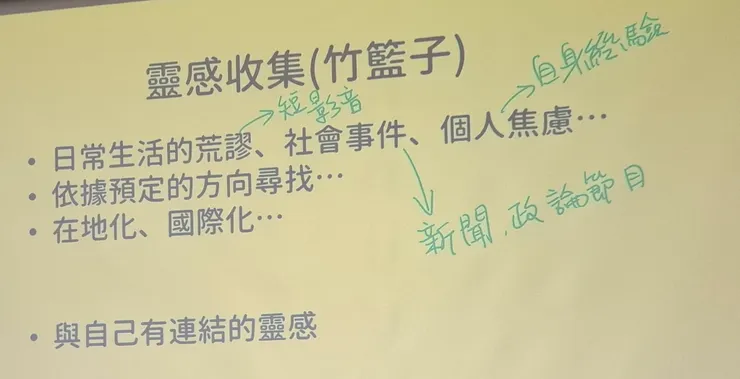 靈感收集(竹籃子)
自身經驗
短影音
• 日常生活的荒謬、社會事件、個人焦慮…
• 依據預定的方向尋找…
• 在地化、國際化…
新聞,政論節目
• 與自己有連結的靈感